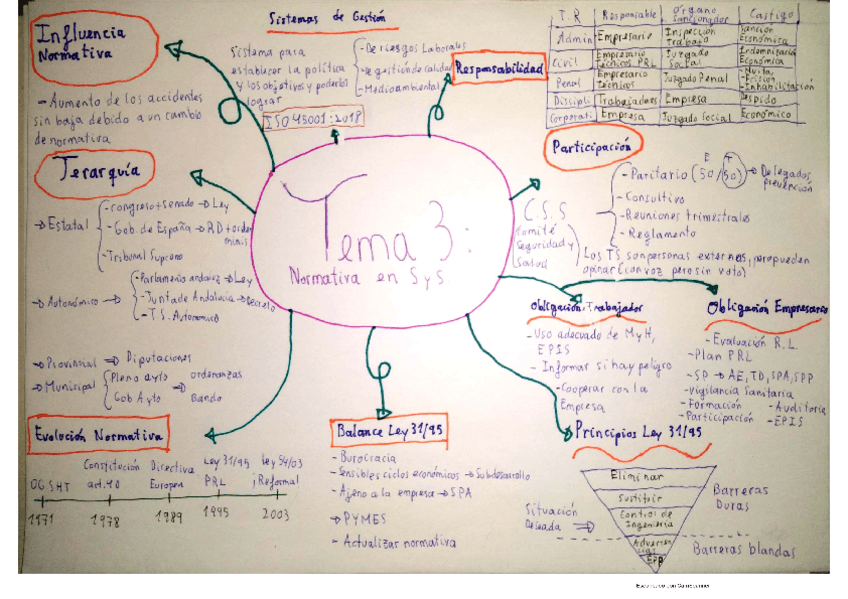 Influencia
Normativa
- Aumento de los accidentes
sin baja debido a un cambio
de normativa
Sistemas de Gestión
Sistema para
establecer la política
y los objetivos y poderlos
lograr
- De riesgos Laborales
- De gestión de calidad
- Medioambiental
ISO 45001:2018
Responsabilidad
T.R Responsable Órgano Sancionador Castigo
Admin Empresario Inspección Trabajo Sanción Económica
Civil Empresario técnicos PRL Juzgado Social Indemnizació Económica
Penal Empresario técnicos Juzgado Penal - Multa - Prision - Inhabilitación
Discipli Trabajadores Empresa Despido
Corporati Empresa Juzgado Social Económico
Participación
C.S.S
Comité
Seguridad y
Salud
E T
- Paritario (50/50) → Delegados
prevención
- Consultivo
- Reuniones trimestrales
- Reglamento
Los TS son personas externas, pero pueden
opinar (con voz pero sin voto)
Jerarquía
→ Estatal
- Congreso + Senado → Ley
- Gob. de España → RD + orden
minis.
- Tribunal Supremo
→ Autonómico →
- Parlamento andaluz → Ley
- Junta de Andalucía → Decreto
- T.S. Autonomico
→ Provincial → Diputaciones
→ Municipal
Pleno ayto
Gob Ayto
→ ordenanzas
Bando
Tema 3:
Normativa en SyS.
Obligación Trabajador
- Uso adecuado de MyH,
EPIS
- Informar si hay peligro
- Cooperar con la
Empresa
Obligación Empresario
- Evaluación R.L
- Plan PRL
- SP → AE, TD, SPA, SPP
- Vigilancia Sanitaria
- Formación - Auditoría
- Participación - EPIS
Evolución Normativa
OGSHT
Constitución
art. 40
Directiva
Europea
Ley 31/95
PRL
Ley 54/03
¡Reforma!
1971 1978 1989 1995 2003
Balance Ley 31/95
- Burocracia
- Sensibles ciclos económicos → Subdesarrollo
- Ajeno a la empresa → SPA
→ PYMES
- Actualizar normativa
Principios Ley 31/95
Situación
Deseada →
Eliminar
Sustituir
Control de
Ingeniería
EPP
Barreras
Duras
Barreras blandas